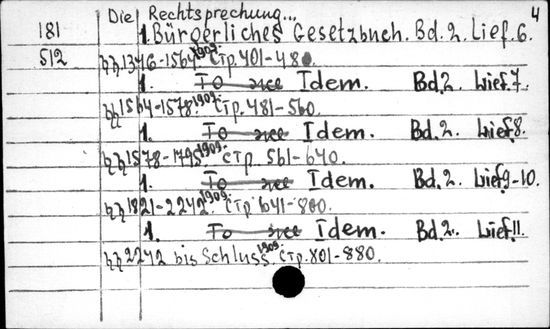 4
Die Rechtsprechung...
181 1. Bürgerliches Gesetzbuch. Bd. 2. Lief. 6.
512 §§1346-1564. 1909. Стр. 401-480.
1. То же Idem. Bd. 2. Lief. 7.
§§1564-1578. 1909. Стр. 481-560.
1. То же Idem. Bd. 2. Lief. 8.
§§1578-1795. 1909. Стр. 561-640.
1. То же Idem. Bd. 2. Lief. 9-10.
§§1821-2242. 1909. Стр. 641-800.
1. То же Idem. Bd. 2. Lief. 11.
§§2242 bis Schluss. 1909. Стр. 801-880.